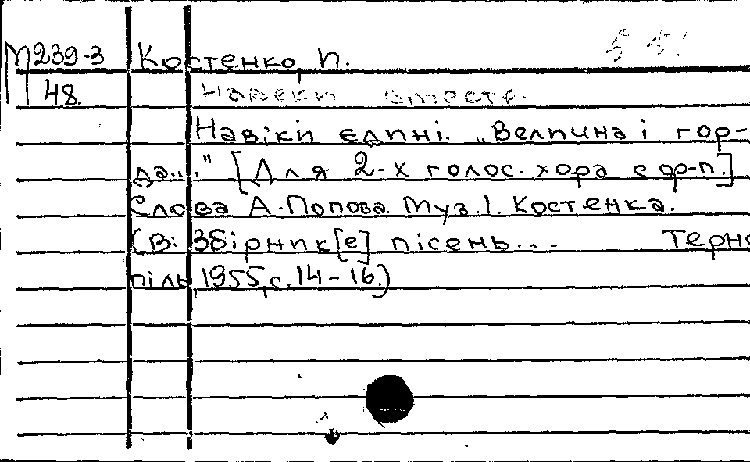 М239-3 Костенко, И.
48 Навеки вместе.
Навіки єдині. „Велична і гор-
да..." [Для 2-х голос. хора с ф-п.]
Слова А. Попова. Муз. І. Костенка.
(В: Збірник[е] пісень... Терно
піль, 1955, с. 14-16.)